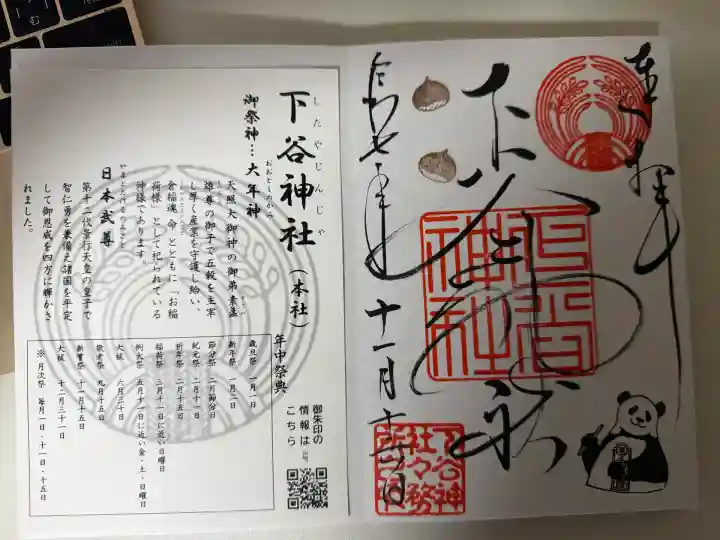 奉拝
下谷神社
令和七年
十一月十六日
下谷神社
下谷神
社々務
したやじんじゃ
下谷神社(本社)
御祭神…大年神
おおとしのかみ
天照大御神の御弟素盞
雄尊の御子で五穀を主宰
し厚く産業を守護し給い、
倉稲魂命とともに「お稲
荷様」として祀られている
神様であります。
日本武尊
やまとたけるのみこと
第十二代景行天皇の皇子で
智仁勇を兼備え諸国を平定
して御恩威を四方に輝かさ
れました。
年中祭典
歳旦祭 一月一日
新年祭 一月二日
節分祭 二月節分日
紀元祭 二月十一日
祈年祭 二月十五日
稲荷祭 三月十一日に近い日曜日
例大祭 五月十一日に近い金・土・日曜日
大祓 六月三十日
敬老祭 九月十五日
新嘗祭 十一月十五日
大祓 十二月三十一日
※月次祭 毎月一日・十一日・十五日
御朱印の
情報は
こちら